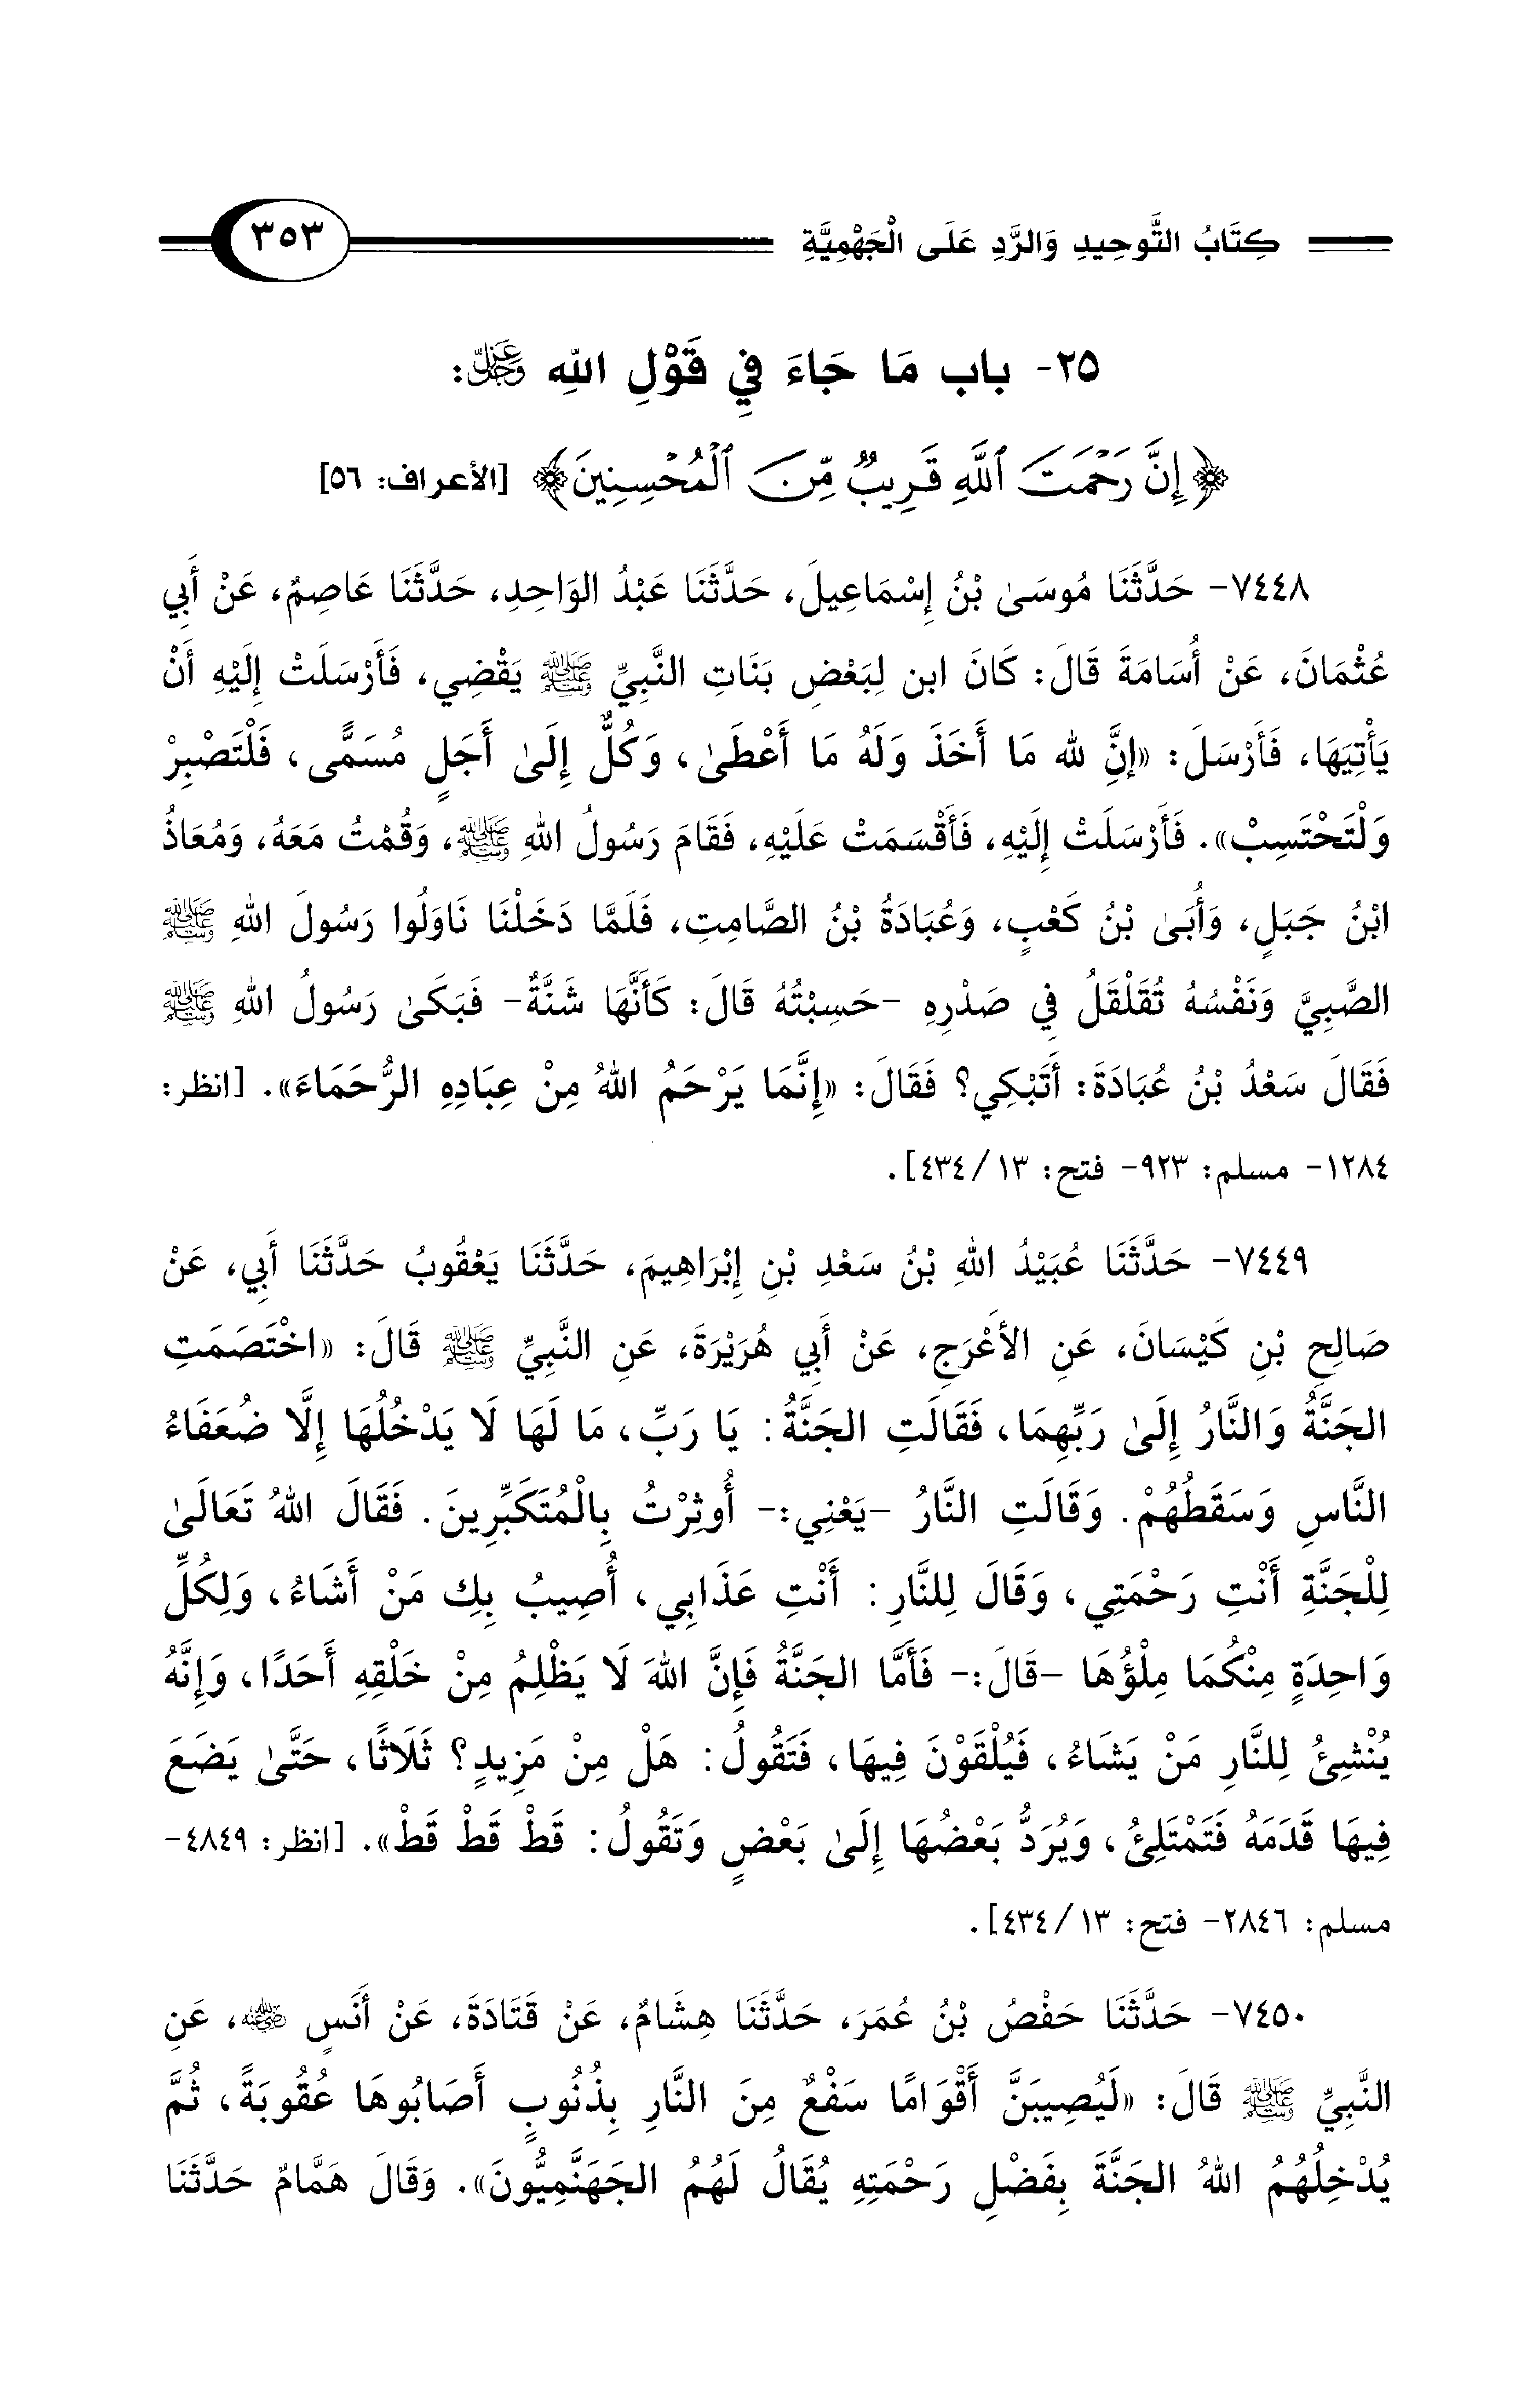 كِتَابُ التَّوحِيدِ وَالرَّدِ عَلَى الْجَهْمِيَّةِ ٣٥٣
٢٥- باب مَا جَاءَ فِي قَوْلِ اللهِ عَزَّ وَجَلَّ:
﴿إِنَّ رَحْمَتَ ٱللَّهِ قَرِيبٌ مِّنَ ٱلْمُحْسِنِينَ﴾ [الأعراف: ٥٦]
٧٤٤٨- حَدَّثَنَا مُوسَىٰ بْنُ إِسْمَاعِيلَ، حَدَّثَنَا عَبْدُ الوَاحِدِ، حَدَّثَنَا عَاصِمٌ، عَنْ أَبِي
عُثْمَانَ، عَنْ أُسَامَةَ قَالَ: كَانَ ابن لِبَعْضِ بَنَاتِ النَّبِيِّ ﷺ يَقْضِي، فَأَرْسَلَتْ إِلَيْهِ أَنْ
يَأْتِيَهَا، فَأَرْسَلَ: «إِنَّ لله مَا أَخَذَ وَلَهُ مَا أَعْطَىٰ، وَكُلٌّ إِلَىٰ أَجَلٍ مُسَمًّى، فَلْتَصْبِرْ
وَلْتَحْتَسِبْ». فَأَرْسَلَتْ إِلَيْهِ، فَأَقْسَمَتْ عَلَيْهِ، فَقَامَ رَسُولُ اللهِ ﷺ، وَقُمْتُ مَعَهُ، وَمُعَاذُ
ابْنُ جَبَلٍ، وَأُبَىٰ بْنُ كَعْبٍ، وَعُبَادَةُ بْنُ الصَّامِتِ، فَلَمَّا دَخَلْنَا نَاوَلُوا رَسُولَ اللهِ ﷺ
الصَّبِيَّ وَنَفْسُهُ تُقَلْقَلُ فِي صَدْرِهِ -حَسِبْتُهُ قَالَ: كَأَنَّهَا شَنَّةٌ- فَبَكَىٰ رَسُولُ اللهِ ﷺ
فَقَالَ سَعْدُ بْنُ عُبَادَةَ: أَتَبْكِي؟ فَقَالَ: «إِنَّمَا يَرْحَمُ اللهُ مِنْ عِبَادِهِ الرُّحَمَاءَ». [انظر:
١٢٨٤- مسلم: ٩٢٣- فتح: ١٣/ ٤٣٤].
٧٤٤٩- حَدَّثَنَا عُبَيْدُ اللهِ بْنُ سَعْدِ بْنِ إِبْرَاهِيمَ، حَدَّثَنَا يَعْقُوبُ حَدَّثَنَا أَبِي، عَنْ
صَالِحِ بْنِ كَيْسَانَ، عَنِ الأَعْرَجِ، عَنْ أَبِي هُرَيْرَةَ، عَنِ النَّبِيِّ ﷺ قَالَ: «اخْتَصَمَتِ
الجَنَّةُ وَالنَّارُ إِلَىٰ رَبِّهِمَا، فَقَالَتِ الجَنَّةُ: يَا رَبِّ، مَا لَهَا لَا يَدْخُلُهَا إِلَّا ضُعَفَاءُ
النَّاسِ وَسَقَطُهُمْ. وَقَالَتِ النَّارُ -يَعْنِي:- أُوثِرْتُ بِالْمُتَكَبِّرِينَ. فَقَالَ اللهُ تَعَالَىٰ
لِلْجَنَّةِ أَنْتِ رَحْمَتِي، وَقَالَ لِلنَّارِ: أَنْتِ عَذَابِي، أُصِيبُ بِكِ مَنْ أَشَاءُ، وَلِكُلِّ
وَاحِدَةٍ مِنْكُمَا مِلْؤُهَا -قَالَ:- فَأَمَّا الجَنَّةُ فَإِنَّ اللهَ لَا يَظْلِمُ مِنْ خَلْقِهِ أَحَدًا، وَإِنَّهُ
يُنْشِئُ لِلنَّارِ مَنْ يَشَاءُ، فَيُلْقَوْنَ فِيهَا، فَتَقُولُ: هَلْ مِنْ مَزِيدٍ؟ ثَلَاثًا، حَتَّىٰ يَضَعَ
فِيهَا قَدَمَهُ فَتَمْتَلِئُ، وَيُرَدُّ بَعْضُهَا إِلَىٰ بَعْضٍ وَتَقُولُ: قَطْ قَطْ قَطْ». [انظر: ٤٨٤٩-
مسلم: ٢٨٤٦- فتح: ١٣/ ٤٣٤].
٧٤٥٠- حَدَّثَنَا حَفْصُ بْنُ عُمَرَ، حَدَّثَنَا هِشَامٌ، عَنْ قَتَادَةَ، عَنْ أَنَسٍ رضي الله عنه، عَنِ
النَّبِيِّ ﷺ قَالَ: «لَيُصِيبَنَّ أَقْوَامًا سَفْعٌ مِنَ النَّارِ بِذُنُوبٍ أَصَابُوهَا عُقُوبَةً، ثُمَّ
يُدْخِلُهُمُ اللهُ الجَنَّةَ بِفَضْلِ رَحْمَتِهِ يُقَالُ لَهُمُ الجَهَنَّمِيُّونَ». وَقَالَ هَمَّامٌ حَدَّثَنَا